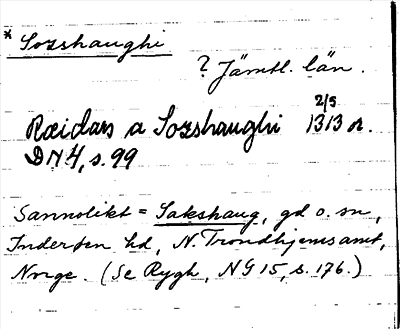 * Sozshaughi
? Jämtl. län.
Ræidars a Sozshaughi 2/5 1313 or.
DN 4, s. 99
Sannolikt = Sakshaug, gd o. sn,
Inderøen hd, N. Trondhjems amt,
Norge. (Se Rygh, NG 15, s. 176.)